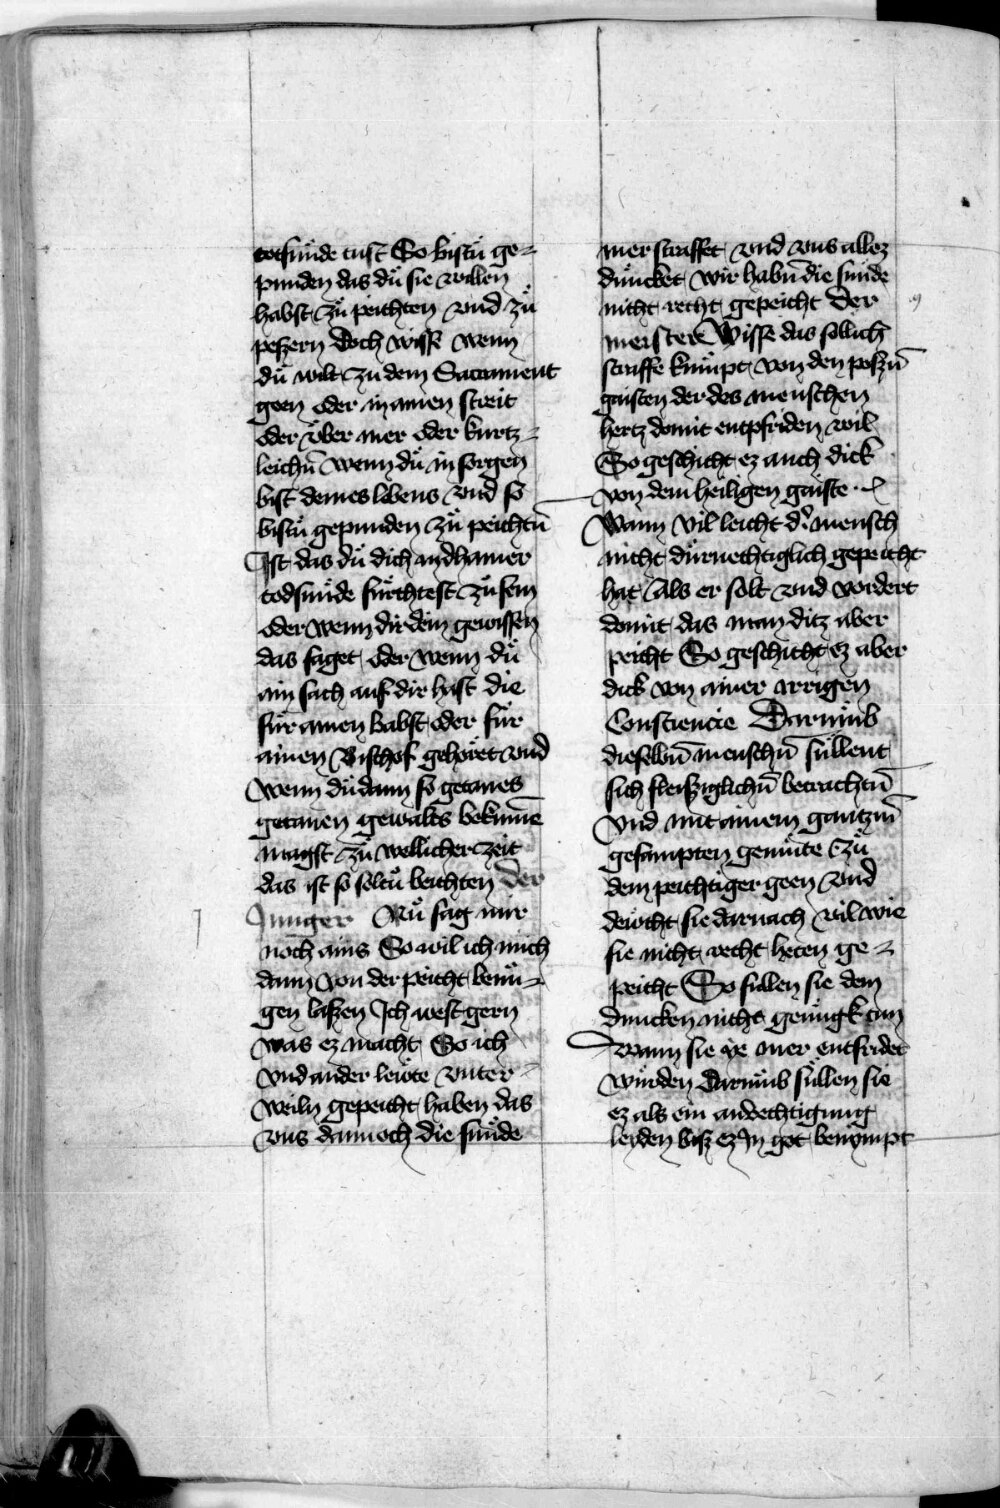 totsünde tust So bistu ge⸗
punden das dü sie willen
habst zü peichten vnd zü
peßern doch wiße wenn
dü wilt zu dem Sacrament
geen oder in ainen streit
oder vber mer oder kurtz⸗
leichn̄ wenn dü in sorgen
bist deines lebens vnd so
bistü gepunden zü peichtn̄
Jst das dü dich
todsünde fürchtest zü sein
oder wenn dir dein gewissen
das saget oder wenn dü
ain sach auf dir hast die
für ainen babst oder für
ainen Bischof gehöret vnd
wenn dü dann so getanes
getanen gewalts bekum̄e
magst zü wellicher zeit
das ist so soltü beichten der
Junger Nü sag mir
noch ains So wil ich mich
dann von der peicht benü⸗
gen laßen Jch west gern
was ez macht So ich
vnd ander lewte vnter⸗
weiln gepeicht haben das
vns dannoch die sünde
mer straffet vnd vns allez
düncket wir habn̄ die sünde
nicht recht gepeicht Der
meister Wisse das sollich
straffe kumpt von den poszn̄
gaisten der des menschen
hertz domit entpfriden wil
So geschicht ez auch dick
von dem heiligen gaiste
Wann vil leicht d' mensch
nicht dürnechtiglich gepeicht
hat als er solt vnd vordert
domit das man ditz aber
peicht So geschicht ez aber
dick von ainer irrigen
Consciencie Darümb
dieselbn̄ menschn̄ süllent
sich fleisziglichn̄ betrachtn̄
Vnd mit ainem gantzm̄
gesampten gemüte zü
dem peichtiger geen vnd
dewcht sie darnach vil wie
sie nicht recht heten ge⸗
peicht So sullen sie dem
duncken nicht genügk tun
Wann sie ye mer entfridet
würden Darümb süllen sie
ez als ein anvechtigung
leyden bisz ez in got benympt